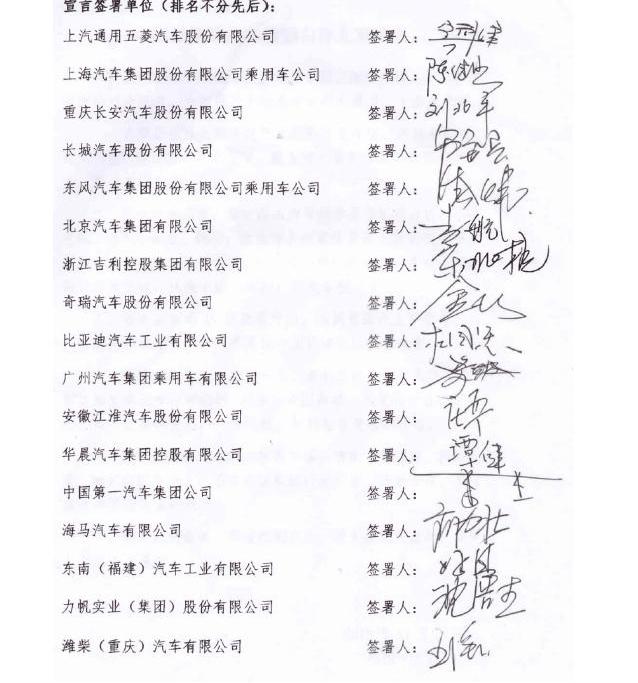 宣言签署单位（排名不分先后）：
上汽通用五菱汽车股份有限公司 签署人：
上海汽车集团股份有限公司乘用车公司 签署人：
重庆长安汽车股份有限公司 签署人：
长城汽车股份有限公司 签署人：
东风汽车集团股份有限公司乘用车公司 签署人：
北京汽车集团有限公司 签署人：
浙江吉利控股集团有限公司 签署人：
奇瑞汽车股份有限公司 签署人：
比亚迪汽车工业有限公司 签署人：
广州汽车集团乘用车有限公司 签署人：
安徽江淮汽车股份有限公司 签署人：
华晨汽车集团控股有限公司 签署人：谭健
中国第一汽车集团公司 签署人：
海马汽车有限公司 签署人：
东南（福建）汽车工业有限公司 签署人：
力帆实业（集团）股份有限公司 签署人：
潍柴（重庆）汽车有限公司 签署人：